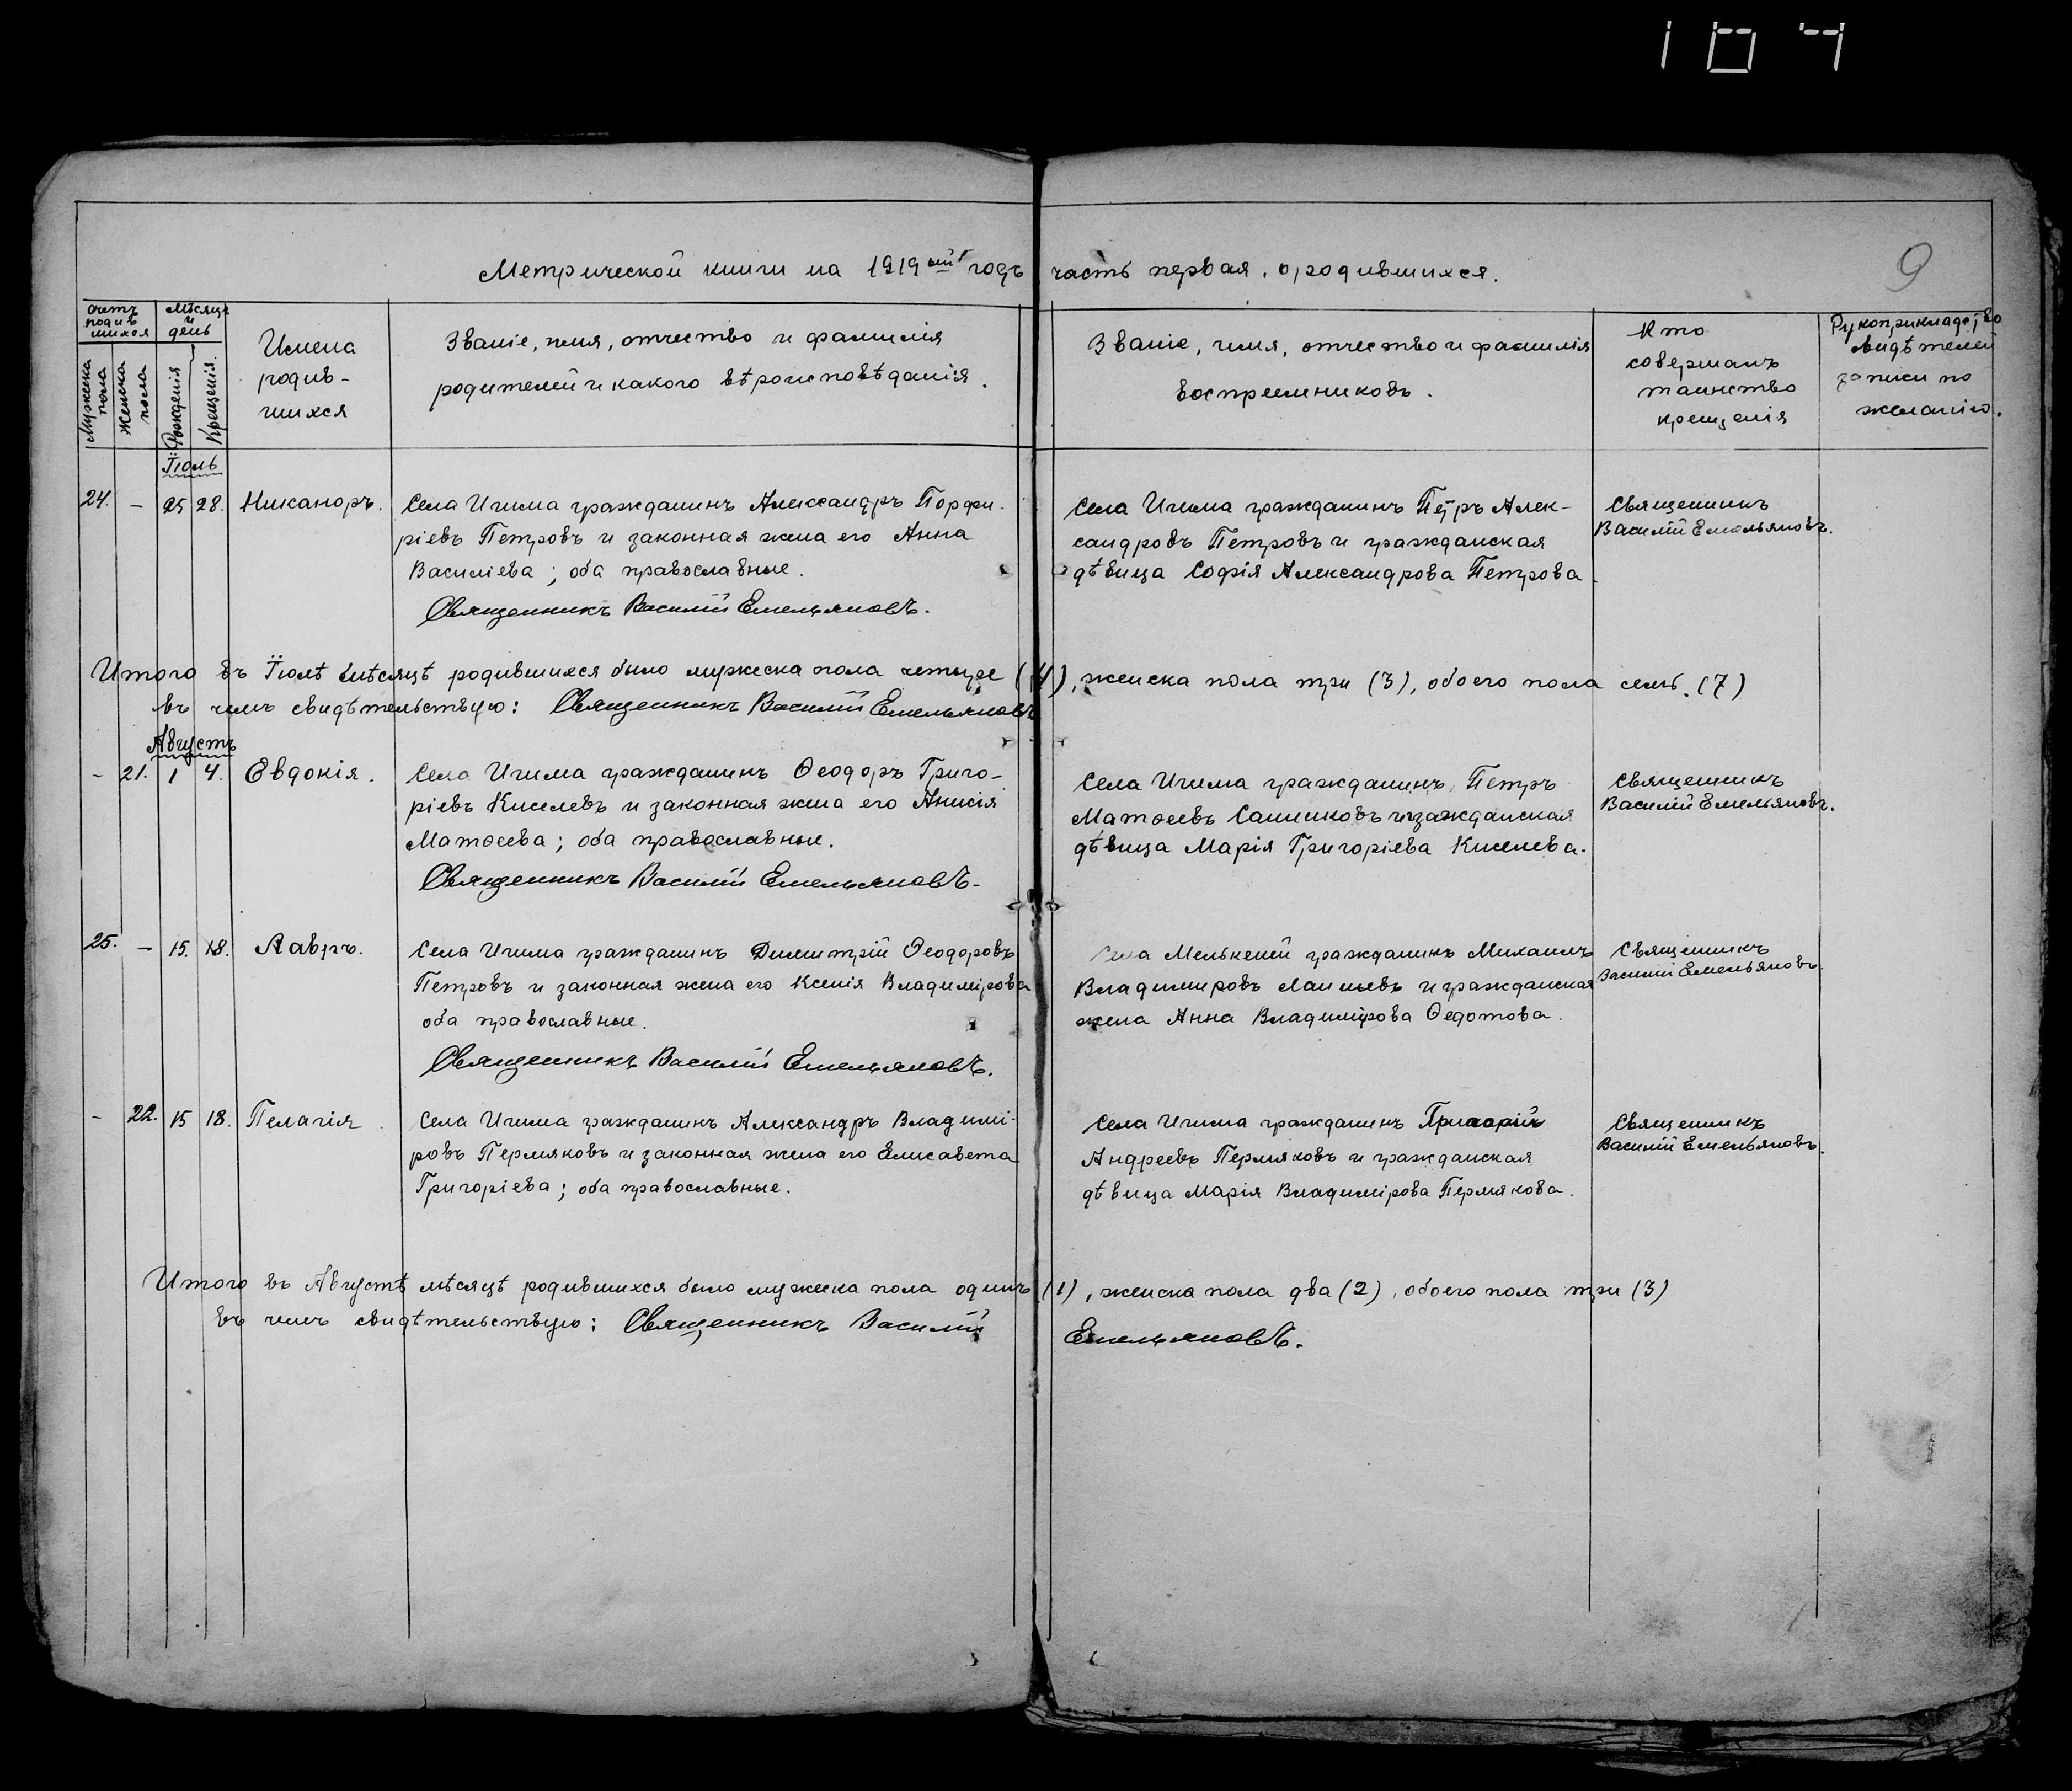 107
9
Метрической книги на 1919ый годъ часть первая, о родившихся.
Счетъ родив шихся
Мѣсяцъ и день
Мужеска пола
Женска пола
Рожденія
Крещенія.
Имена
родив-
шихся
Званіе, имя, отчество и фамилія
родителей и какого вѣроисповѣданія.
Званіе, имя, отчество и фамилія
воспреемниковъ.
Кто
совершалъ
таинство
крещенія
Рукоприкладство
свидѣтелей
записи по
желанію.
Іюль
24. — 25 28. Никаноръ.
Села Ичима гражданинъ Александръ Порфи-
ріевъ Петровъ и законная жена его Анна
Василіева; оба православные.
Священникъ Василій Емельяновъ.
Села Ичима гражданинъ Петръ Алек-
сандровъ Петровъ и гражданская
дѣвица Софія Александрова Петрова.
Священникъ
Василій Емельяновъ.
Итого въ Іюлѣ мѣсяцѣ родившихся было мужеска пола четыре (4), женска пола три (3), обоего пола семь. (7)
въ чемъ свидѣтельствую: Священникъ Василій Емельяновъ
Августъ
— 21. 1 4. Евдокія.
Села Ичима гражданинъ Ѳеодоръ Григо-
ріевъ Киселевъ и законная жена его Анисія
Матѳеева; оба православные.
Священникъ Василій Емельяновъ.
Села Ичима гражданинъ Петръ
Матѳеевъ и гражданская
дѣвица Марія Григоріева Киселева.
Священникъ
Василій Емельяновъ.
25. — 15. 18. Лавръ.
Села Ичима гражданинъ Димитрій Ѳеодоровъ
Петровъ и законная жена его Ксенія Владимірова
оба православные.
Священникъ Василій Емельяновъ.
Села гражданинъ Михаилъ
Владимировъ и гражданская
жена Анна Владимірова Ѳедотова.
Священникъ
Василій Емельяновъ.
— 22. 15 18. Пелагія.
Села Ичима гражданинъ Александръ Владимі-
ровъ Пермяковъ и законная жена его Елисавета
Григоріева; оба православные.
Села Ичима гражданинъ Григорій
Андреевъ Пермяковъ и гражданская
дѣвица Марія Владимірова Пермякова.
Священникъ
Василій Емельяновъ.
Итого въ Августѣ мѣсяцѣ родившихся было мужеска пола одинъ (1), женска пола два (2), обоего пола три (3)
въ чемъ свидѣтельствую: Священникъ Василій Емельяновъ.